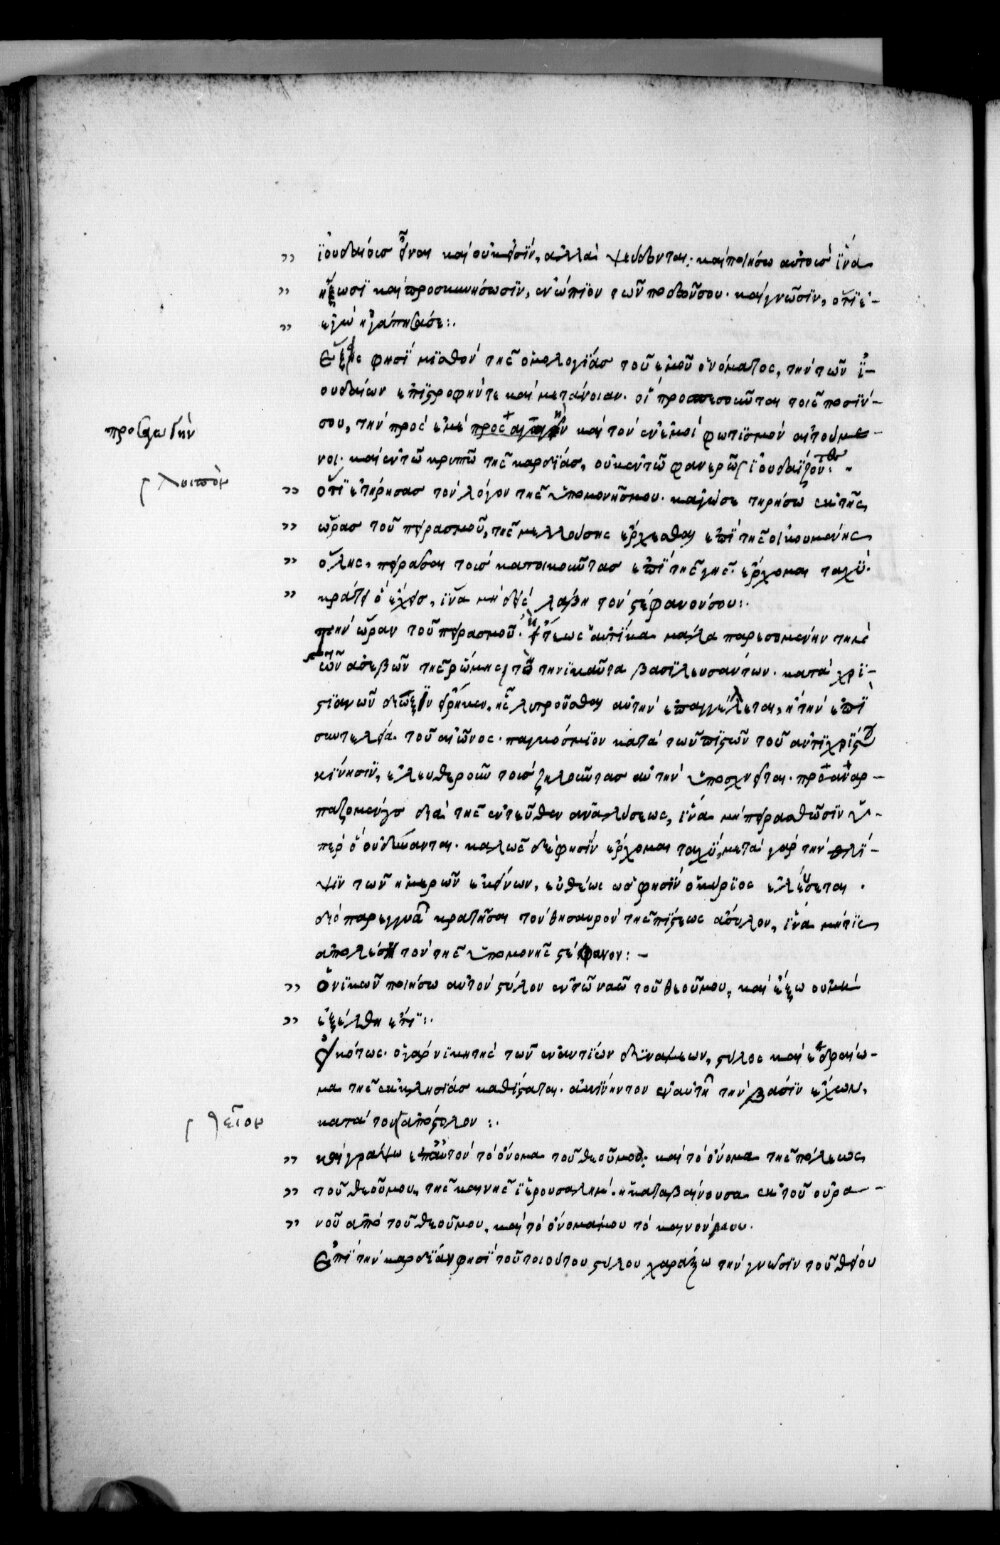 ἰουδαίοις εἶναι καὶ οὐκ εἰσὶν, ἀλλὰ ψεύδονται· καὶ ποιήσω αὐτοὺς ἵνα
ἥξωσι καὶ προσκυνήσωσιν, ἐνώπιον τῶν ποδῶν σου· καὶ γνῶσιν, ὅτι ἐ-
ἐγὼ ἠγάπησά σε:
Ἕξεις φησὶ μισθὸν τῆς ὁμολογίας τοῦ ἐμοῦ ὀνόματος, τὴν τῶν ἰ-
ουδαίων ἐπιστροφήν τε καὶ μετάνοιαν· οἳ προσπεσοῦνται τοῖς ποσίν
σου, τὴν πρὸς ἐμὲ καὶ τὸν ἐν ἐμοὶ φωτισμὸν αἰτούμε-
προσαγωγὴν
νοι· καὶ ἐν τῷ κρυπτῷ τῆς καρδίας, οὐκ ἐν τῷ φανερῷ ἰουδαΐζον
λοιπὸν
ὅτι ἐτήρησας τὸν λόγον τῆς ὑπομονῆς μου· κἀγώ σε τηρήσω ἐκ τῆς
ὥρας τοῦ πειρασμοῦ, τῆς μελλούσης ἔρχεσθαι ἐπὶ τῆς οἰκουμένης
ὅλης, πειράσαι τοὺς κατοικοῦντας ἐπὶ τῆς γῆς· ἔρχομαι ταχύ·
κράτει ὃ ἔχεις, ἵνα μηδεὶς λάβῃ τὸν στέφανόν σου:
τὴν ὥραν τοῦ πειρασμοῦ· ἤτοι ὡς αὐτίκα μάλα παρεσομένην τῇ μὲ
τῶν ἀσεβῶν τῆς ῥώμης τὸ τηνικαῦτα βασιλευσάντων· κατὰ χρι-
στιανῶν διωξιν εἴρηκεν, ἧς λυτροῦσθαι αὐτὴν ἐπαγγέλεται, ἢ τὴν ἐπὶ
συντελείᾳ τοῦ αἰῶνος παγκόσμιον κατὰ τῶν πιστῶν τοῦ ἀντιχρίστου
κίνησιν, ἐλευθεροῦν τοὺς ζηλοῦντας αὐτὴν ὑποσχνεῖται· προαναρ-
παζομένους διὰ τῆς ἐντεῦθεν ἀναλύσεως, ἵνα μὴ πειρασθῶσιν ὑ-
πὲρ ὃ οὐ δύνανται· καλῶς δέ φησιν ἔρχομαι ταχύ, μετὰ γὰρ τὴν θλί-
ψιν τῶν ἡμερῶν ἐκείνων, εὐθέως ὥς φησιν ὁ κύριος ἐλεύσεται·
διὸ παρεγγυᾷ κρατῆσαι τὸν θησαυρὸν τῆς πίστεως ἄσυλον, ἵνα μήτις
ἀπολέσῃ τὸν τῆς ὑπομονῆς στέφανον: -
Ὁ νικῶν ποιήσω αὐτὸν στύλον ἐν τῷ ναῷ τοῦ θεοῦ μου, καὶ ἔξω οὐ μὴ
ἐξέλθῃ ἔτι:
Εἰκότως· ὁ γὰρ νικητὴς τῶν ἐναντίων δυνάμεων, στύλος καὶ ἑδραίω-
μα τῆς ἐκκλησίας καθίσταται· ἀκίνητον ἐν αὐτῇ τὴν βάσιν ἔχων,
κατὰ τὸν ἀπόστολον:
θεῖον
καὶ γράψω ἐπ αὐτὸν τὸ ὄνομα τοῦ θεοῦ μου· καὶ τὸ ὄνομα τῆς πόλεως
τοῦ θεοῦ μου, τῆς καινῆς ἱερουσαλήμ· ἡ καταβαίνουσα ἐκ τοῦ οὐρα-
νοῦ ἀπὸ τοῦ θεοῦ μου, καὶ τὸ ὄνομά μου τὸ καινόν
Ἐπὶ τὴν καρδίαν φησὶ τοῦ τοιούτου στύλου χαράξω τὴν γνῶσιν τοῦ θείου